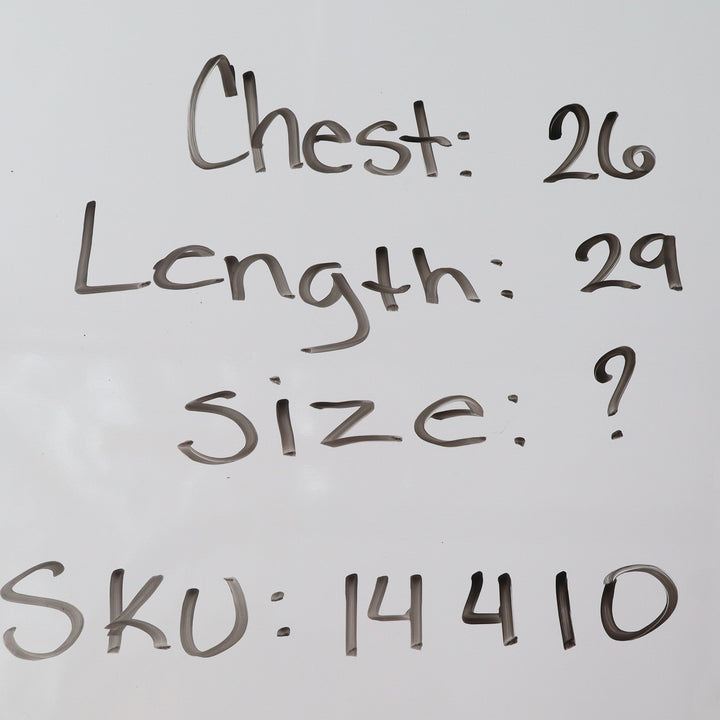 Chest: 26
Length: 29
size: ?
SKU: 14410